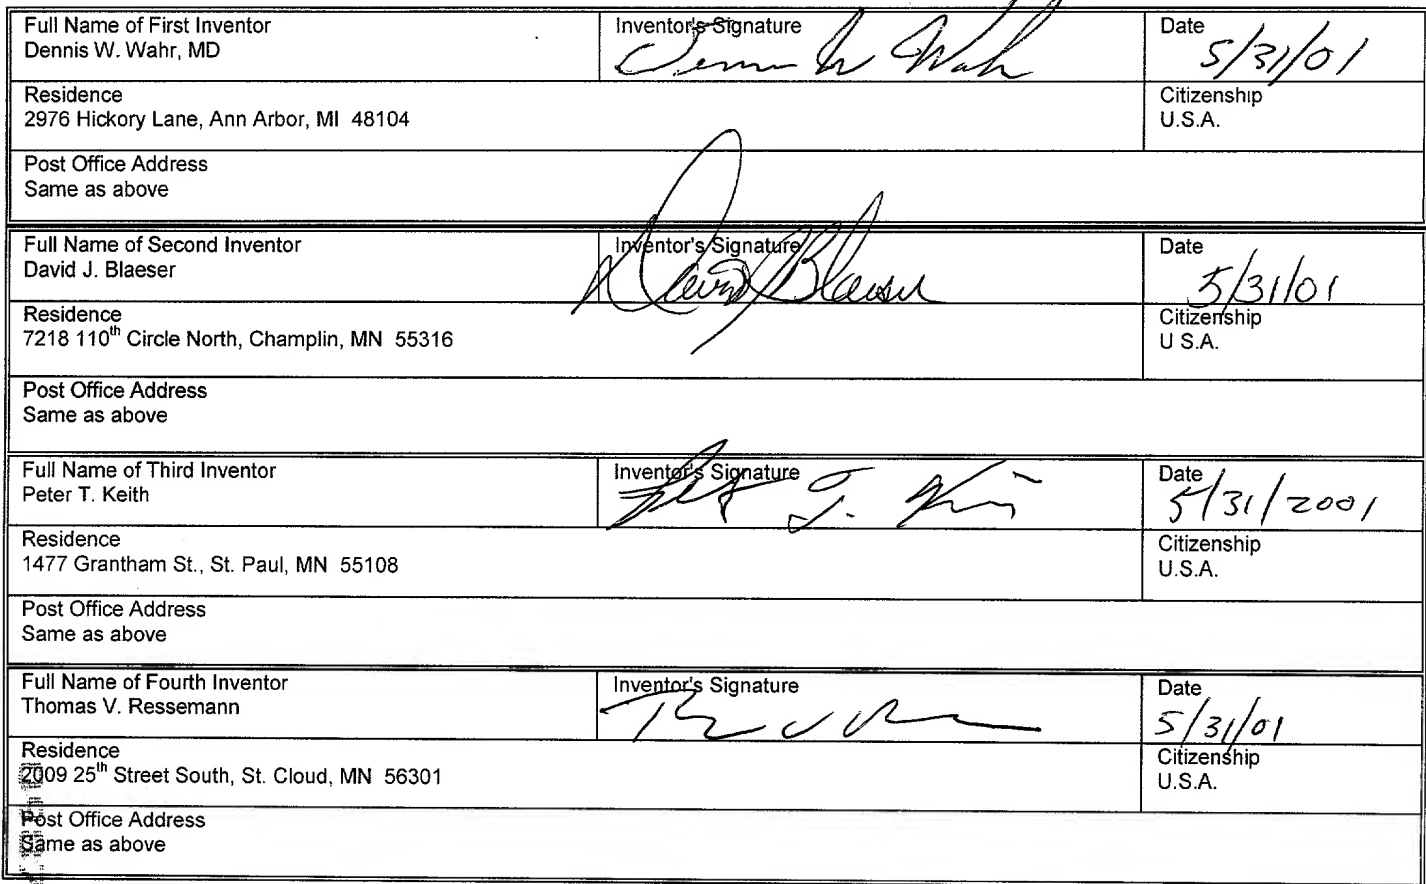 Full Name of First Inventor
Dennis W. Wahr, MD
Inventor's Signature
Dennis W Wahr
Date
5/31/01
Residence
2976 Hickory Lane, Ann Arbor, MI 48104
Citizenship
U.S.A.
Post Office Address
Same as above
Full Name of Second Inventor
David J. Blaeser
Inventor's Signature
David J Blaeser
Date
5/31/01
Residence
7218 110th Circle North, Champlin, MN 55316
Citizenship
U S.A.
Post Office Address
Same as above
Full Name of Third Inventor
Peter T. Keith
Inventor's Signature
Date
5/31/2001
Residence
1477 Grantham St., St. Paul, MN 55108
Citizenship
U.S.A.
Post Office Address
Same as above
Full Name of Fourth Inventor
Thomas V. Ressemann
Inventor's Signature
Date
5/31/01
Residence
2009 25th Street South, St. Cloud, MN 56301
Citizenship
U.S.A.
Post Office Address
Same as above